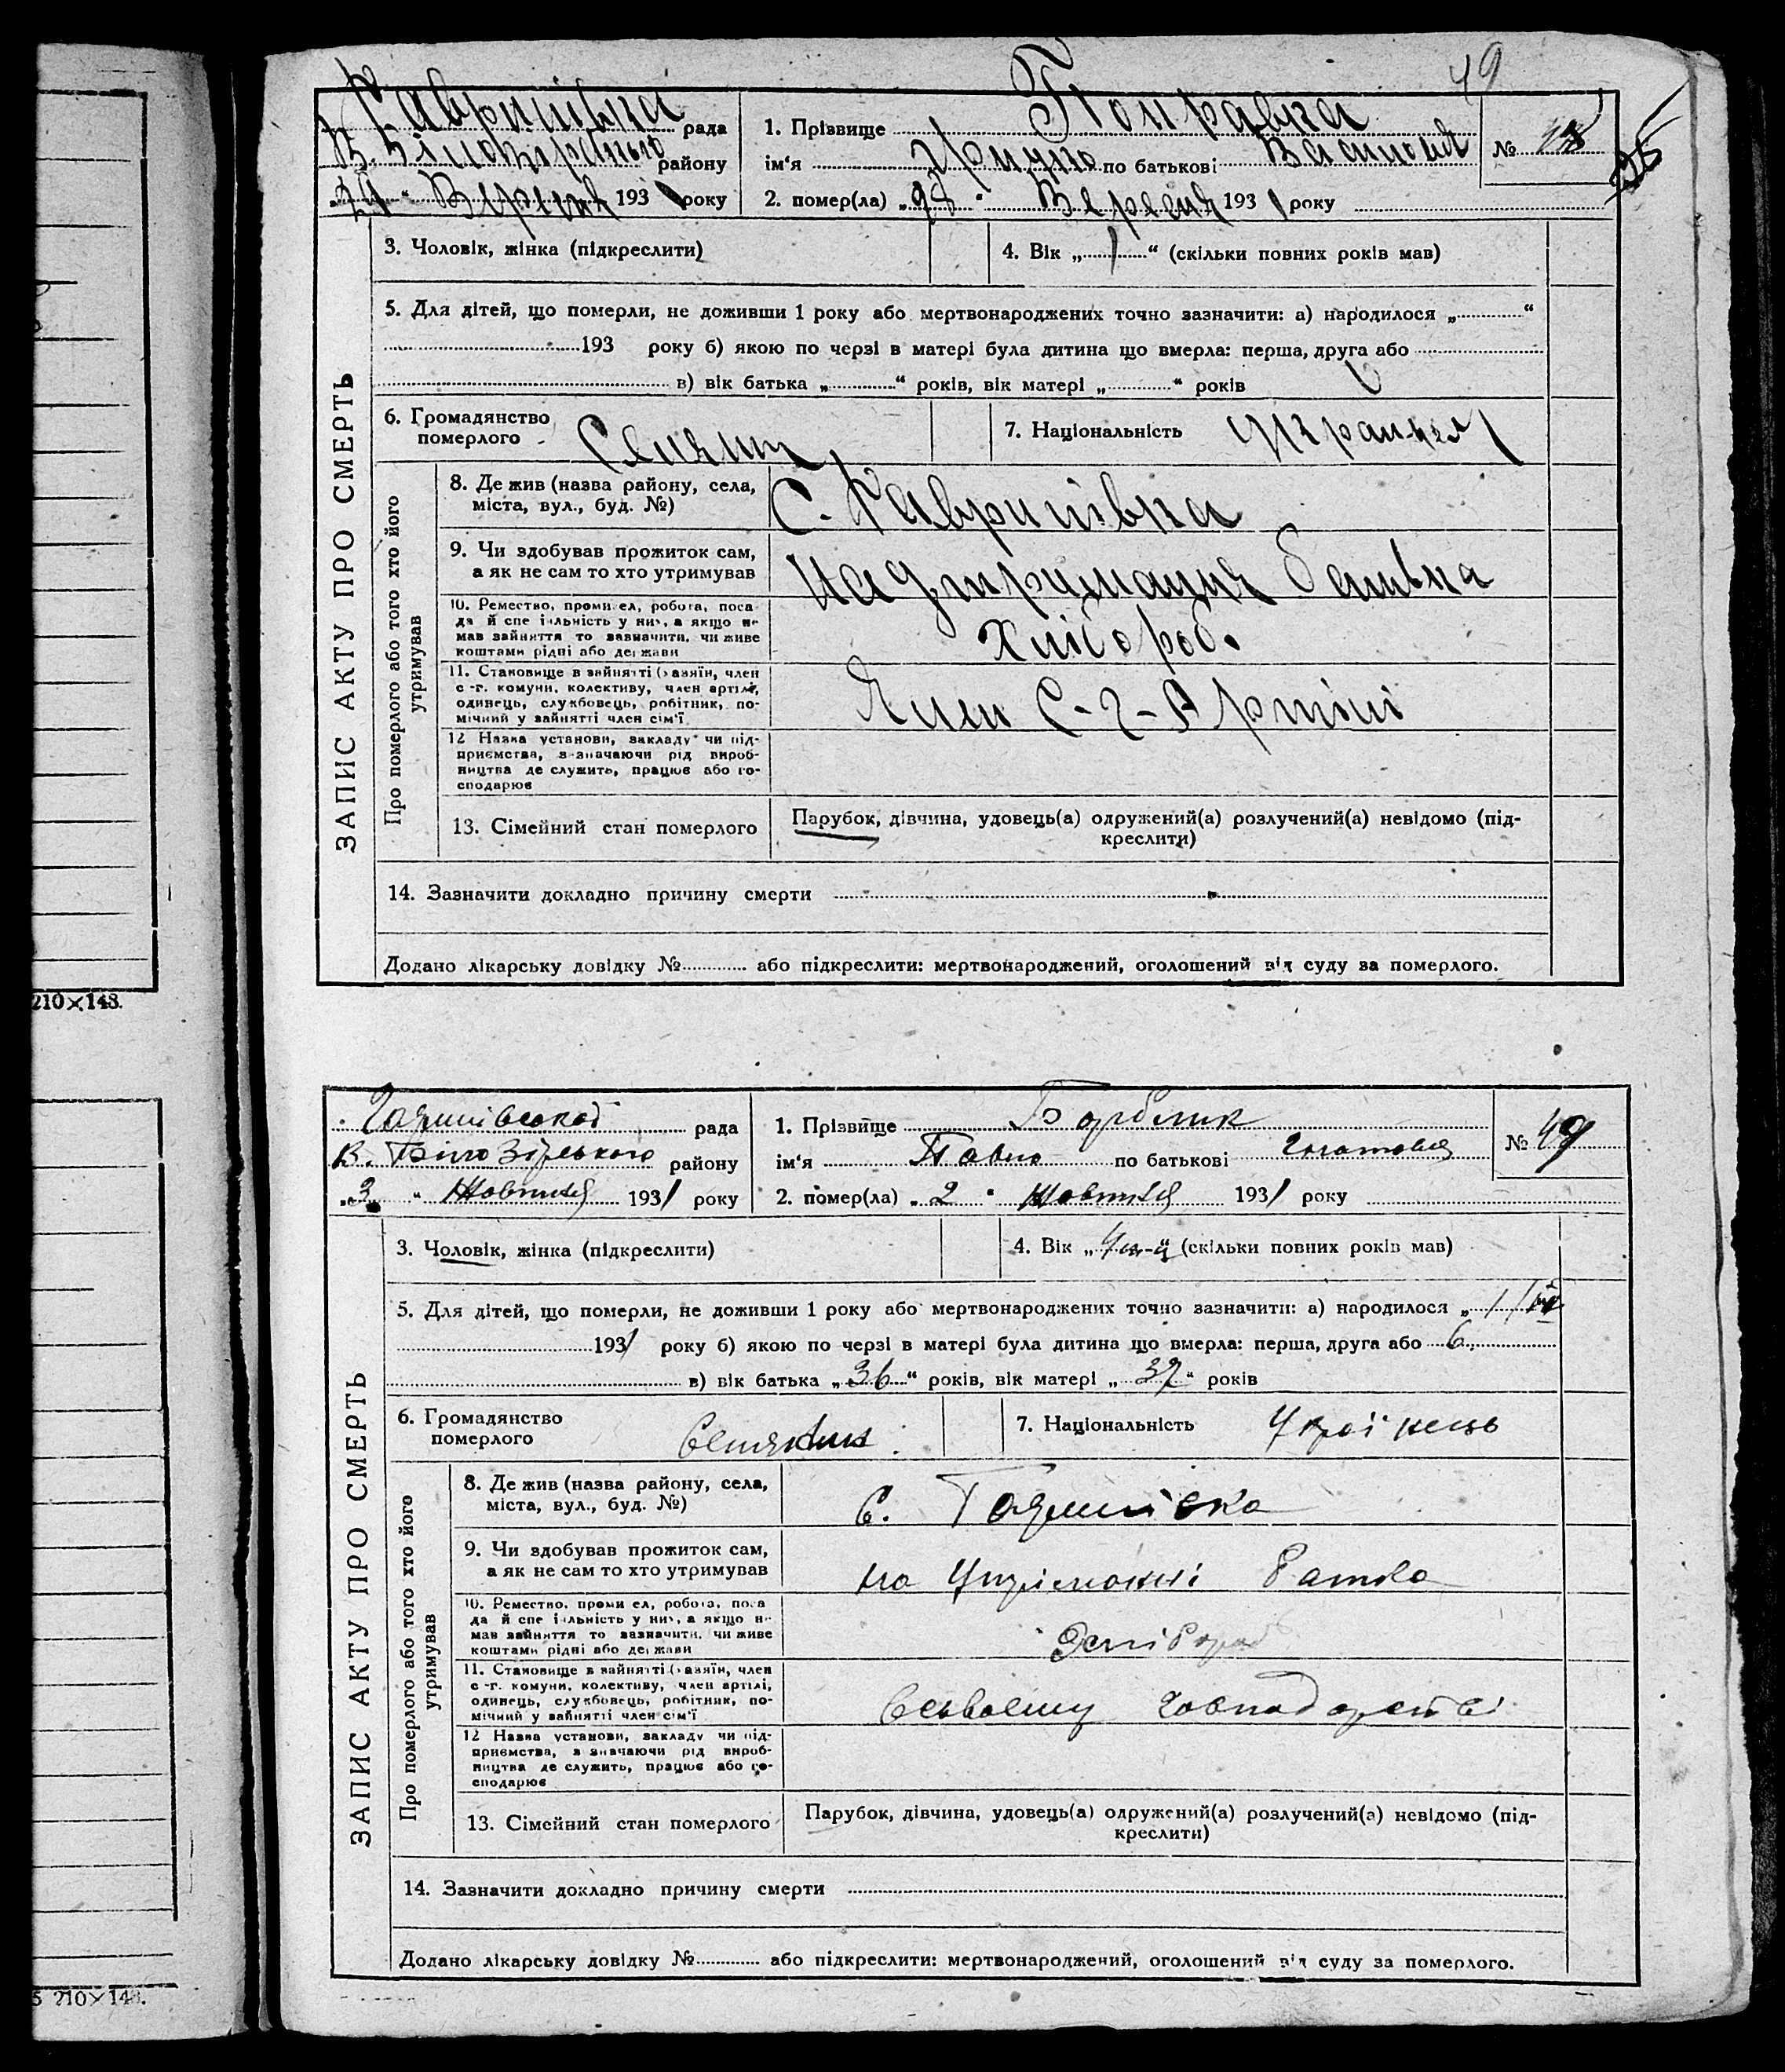 49
Гаврилівка рада
В. Білозірського району
29 Вересня 1931 року
1. Прізвище Поправка
ім'я Грицько по батькові Васильов
№ 48
2. помер(ла) „28" Вересня 1931 року
3. Чоловік, жінка (підкреслити)
4. Вік „1" (скільки повних років мав)
5. Для дітей, що померли, не доживши 1 року або мертвонароджених точно зазначити: а) народилося „ "
193 року б) якою по черзі в матері була дитина що вмерла: перша, друга або
в) вік батька „ " років, вік матері „ " років
6. Громадянство
померлого Селянин
7. Національність Українець
ЗАПИС АКТУ ПРО СМЕРТЬ
Про померлого або того хто його
утримував
8. Де жив (назва району, села,
міста, вул., буд. №)
С. Гаврилівка
9. Чи здобував прожиток сам,
а як не сам то хто утримував
На утримання батька
10. Ремество, промисел, робота, поса-
да й спеціяльність у них, а якщо не
мав зайняття то зазначити, чи живе
коштами рідні або держави
Хлібороб.
11. Становище в зайнятті (хазяїн, член
с.-г. комуни, колективу, член артілі,
одинець, службовець, робітник, по-
мічний у зайнятті член сім'ї
Член С-Г-Артілі
12 Назва установи, закладу чи під-
приємства, зазначаючи рід вироб-
ництва де служить, працює або го-
сподарює
13. Сімейний стан померлого
Парубок, дівчина, удовець(а) одружений(а) розлучений(а) невідомо (під-
креслити)
14. Зазначити докладно причину смерти
Додано лікарську довідку № або підкреслити: мертвонароджений, оголошений від суду за померлого.
210×148.
рада
В. Білозірського району
„3" Жовтня 1931 року
1. Прізвище
ім'я Павло по батькові Гнатович
№ 49
2. помер(ла) „2" Жовтня 1931 року
3. Чоловік, жінка (підкреслити)
4. Вік „ " (скільки повних років мав)
5. Для дітей, що померли, не доживши 1 року або мертвонароджених точно зазначити: а) народилося „
1931 року б) якою по черзі в матері була дитина що вмерла: перша, друга або 6.
в) вік батька „36" років, вік матері „37" років
6. Громадянство
померлого Селянин
7. Національність Українець
ЗАПИС АКТУ ПРО СМЕРТЬ
Про померлого або того хто його
утримував
8. Де жив (назва району, села,
міста, вул., буд. №)
С.
9. Чи здобував прожиток сам,
а як не сам то хто утримував
на Утриманні батька
10. Ремество, промисел, робота, поса-
да й спеціяльність у них, а якщо не
мав зайняття то зазначити, чи живе
коштами рідні або держави
Хлібороб
11. Становище в зайнятті (хазяїн, член
с.-г. комуни, колективу, член артілі,
одинець, службовець, робітник, по-
мічний у зайнятті член сім'ї
господарстві
12 Назва установи, закладу чи під-
приємства, зазначаючи рід вироб-
ництва де служить, працює або го-
сподарює
13. Сімейний стан померлого
Парубок, дівчина, удовець(а) одружений(а) розлучений(а) невідомо (під-
креслити)
14. Зазначити докладно причину смерти
Додано лікарську довідку № або підкреслити: мертвонароджений, оголошений від суду за померлого.
5 210×148.